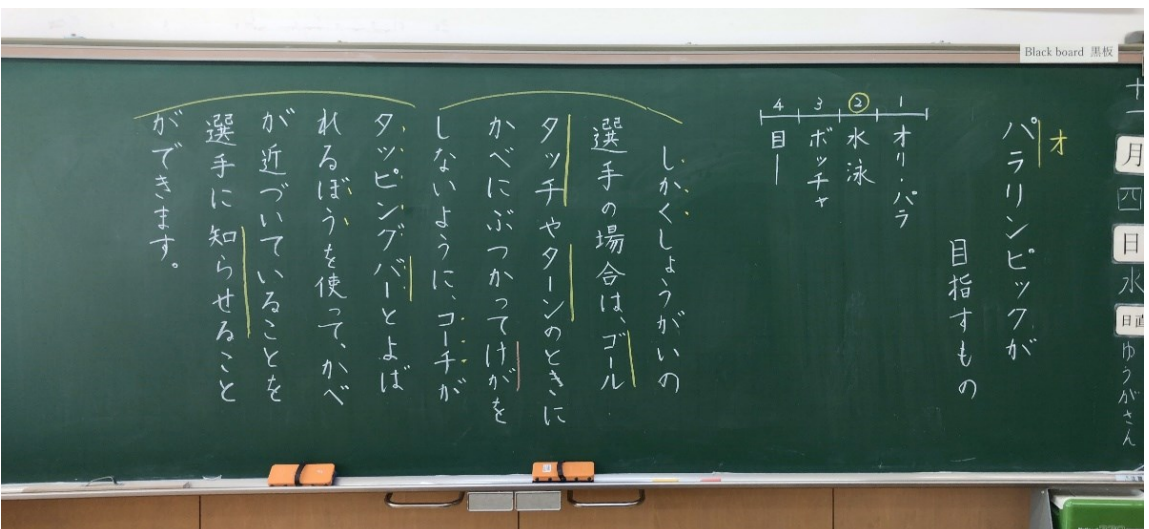 Black board 黒板
十一
月
四
日
水
日直
ゆうがさん
オ
パラリンピックが
目指すもの
1 オリ・パラ
② 水泳
3 ボッチャ
4 目
しかくしょうがいの
選手の場合は、ゴール
タッチやターンのときに
かべにぶつかってけがを
しないように、コーチが
タッピングバーとよば
れるぼうを使って、かべ
が近づいていることを
選手に知らせること
ができます。